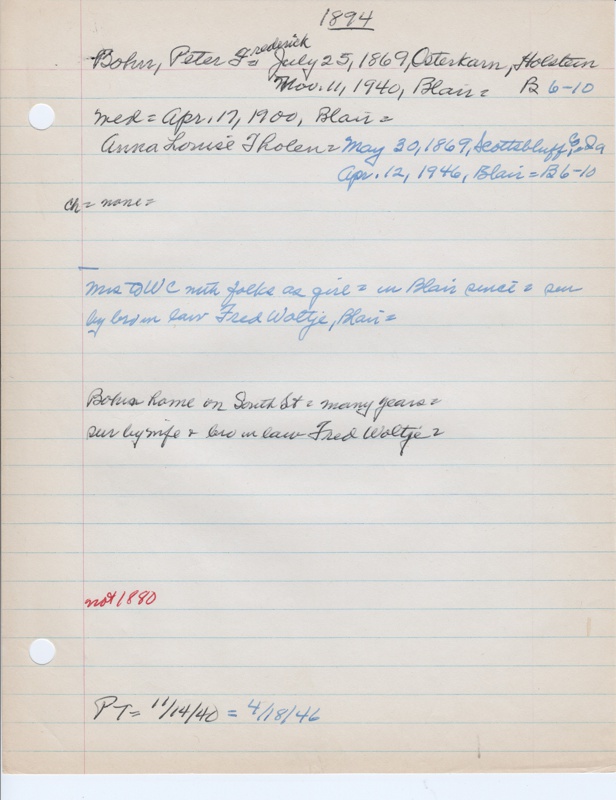 1894
Bohn, Peter F= Frederick July 25, 1869, Osterkarn, Holstein
Nov. 11, 1940, Blair= B 6-10
med= Apr. 17, 1900, Blair=
Anna Louise Tholen= May 30, 1869, Scottsbluff Co, Ia
Apr. 12, 1946, Blair= B6-10
ch= none=
Mrs to WC with folks as girl= in Blair since= sur
by bro in law Fred Woltje, Blair=
Bohn home on South St= many years=
sur by wife & bro in law Fred Woltje=
not 1880
PT= 11/14/40 = 4/18/46